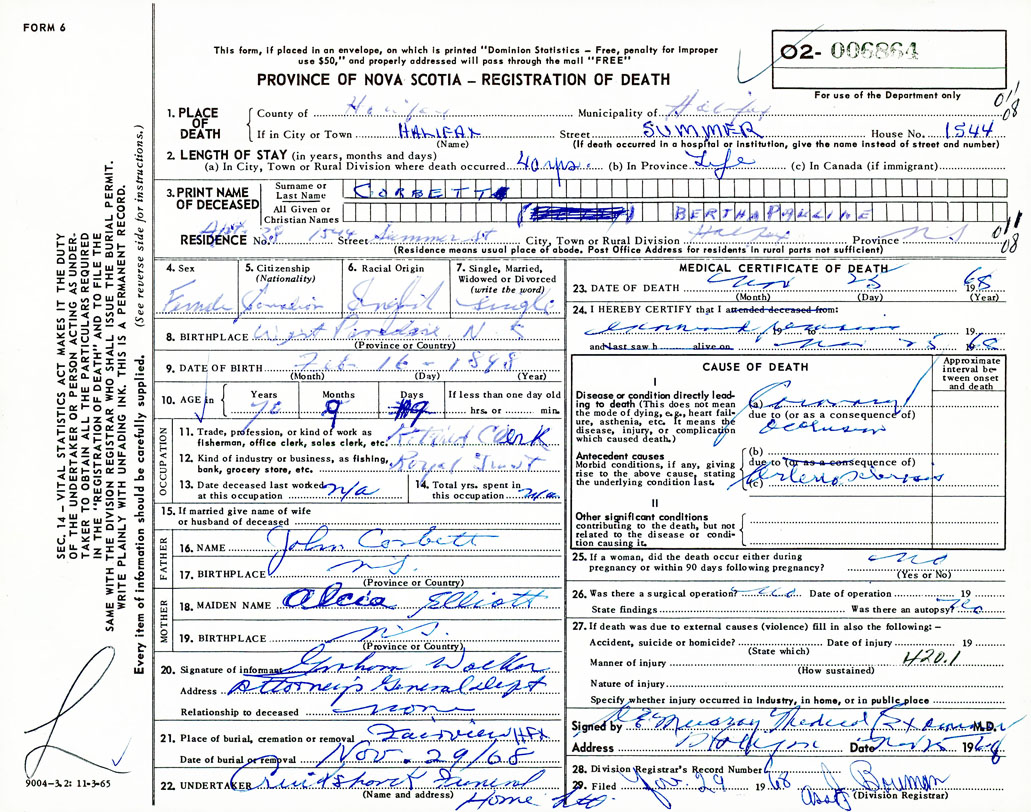 FORM 6
This form, if placed in an envelope, on which is printed "Dominion Statistics – Free, penalty for improper
use $50," and properly addressed will pass through the mail "FREE"
PROVINCE OF NOVA SCOTIA – REGISTRATION OF DEATH
02- 006864
For use of the Department only
1. PLACE OF DEATH
County of Halifax Municipality of Halifax
If in City or Town HALIFAX Street SUMMER House No. 1544
(Name) (If death occurred in a hospital or institution, give the name instead of street and number)
2. LENGTH OF STAY (in years, months and days)
(a) In City, Town or Rural Division where death occurred 40 yrs. (b) In Province Life (c) In Canada (if immigrant)
3. PRINT NAME OF DECEASED
Surname or Last Name CORBETT
All Given or Christian Names BERTHA PAULINE
RESIDENCE No. Apt. 28 1544 Street Summer St City, Town or Rural Division Halifax Province N.S.
(Residence means usual place of abode. Post Office Address for residents in rural parts not sufficient)
011
08
4. Sex Female
5. Citizenship (Nationality) Canadian
6. Racial Origin English
7. Single, Married, Widowed or Divorced (write the word) Single
8. BIRTHPLACE West N.S.
(Province or Country)
9. DATE OF BIRTH Feb 16 - 1898
(Month) (Day) (Year)
10. AGE in Years 70 Months 9 Days 9 If less than one day old hrs. or min.
OCCUPATION
11. Trade, profession, or kind of work as fisherman, office clerk, sales clerk, etc. Retired Clerk
12. Kind of industry or business, as fishing, bank, grocery store, etc. Royal Trust
13. Date deceased last worked at this occupation n/a
14. Total yrs. spent in this occupation n/a
15. If married give name of wife or husband of deceased
FATHER
16. NAME John Corbett
17. BIRTHPLACE N.S.
(Province or Country)
MOTHER
18. MAIDEN NAME Alcia Elliott
19. BIRTHPLACE N.S.
(Province or Country)
20. Signature of informant Graham Walker
Address Attorney's General Dept
Relationship to deceased none
21. Place of burial, cremation or removal Fairview HFX
Date of burial or removal Nov. 29/68
22. UNDERTAKER Cruikshank's Funeral
(Name and address) Home Ltd.
MEDICAL CERTIFICATE OF DEATH
23. DATE OF DEATH Nov 25 1968
(Month) (Day) (Year)
24. I HEREBY CERTIFY that I attended deceased from:
19 to 19
and last saw h alive on Nov 25 1968
CAUSE OF DEATH
Approximate interval between onset and death
I
Disease or condition directly leading to death (This does not mean the mode of dying, e.g., heart failure, asthenia, etc. It means the disease, injury, or complication which caused death.)
(a) Coronary
due to (or as a consequence of)
occlusion
Antecedent causes
Morbid conditions, if any, giving rise to the above cause, stating the underlying condition last.
(b)
due to (or as a consequence of)
(c) Arteriosclerosis
II
Other significant conditions
contributing to the death, but not related to the disease or condition causing it.
25. If a woman, did the death occur either during
pregnancy or within 90 days following pregnancy? No
(Yes or No)
26. Was there a surgical operation? No Date of operation 19
State findings Was there an autopsy? No
27. If death was due to external causes (violence) fill in also the following: –
Accident, suicide or homicide? Date of injury 19
(State which)
Manner of injury 420.1
(How sustained)
Nature of injury
Specify whether injury occurred in Industry, in home, or in public place
Signed by Murray Medical Examiner M.D.
Address Halifax Date 1968
28. Division Registrar's Record Number
29. Filed Nov. 29 1968 Asst J Bowman
(Division Registrar)
SEC. 14 – VITAL STATISTICS ACT MAKES IT THE DUTY
OF THE UNDERTAKER OR PERSON ACTING AS UNDER-
TAKER TO OBTAIN ALL THE PARTICULARS REQUIRED
IN THE "REGISTRATION OF DEATH" AND TO FILE THE
SAME WITH THE DIVISION REGISTRAR WHO SHALL ISSUE THE BURIAL PERMIT.
WRITE PLAINLY WITH UNFADING INK. THIS IS A PERMANENT RECORD.
Every item of information should be carefully supplied. (See reverse side for instructions.)
9004-3.2: 11-3-65